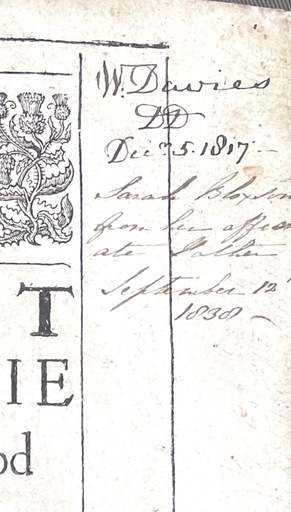 W. Davies
DD
Decr. 5. 1817.-
Sarah Bloxson
from her affection
ate Father
September 12
1838 -
T
IE
od